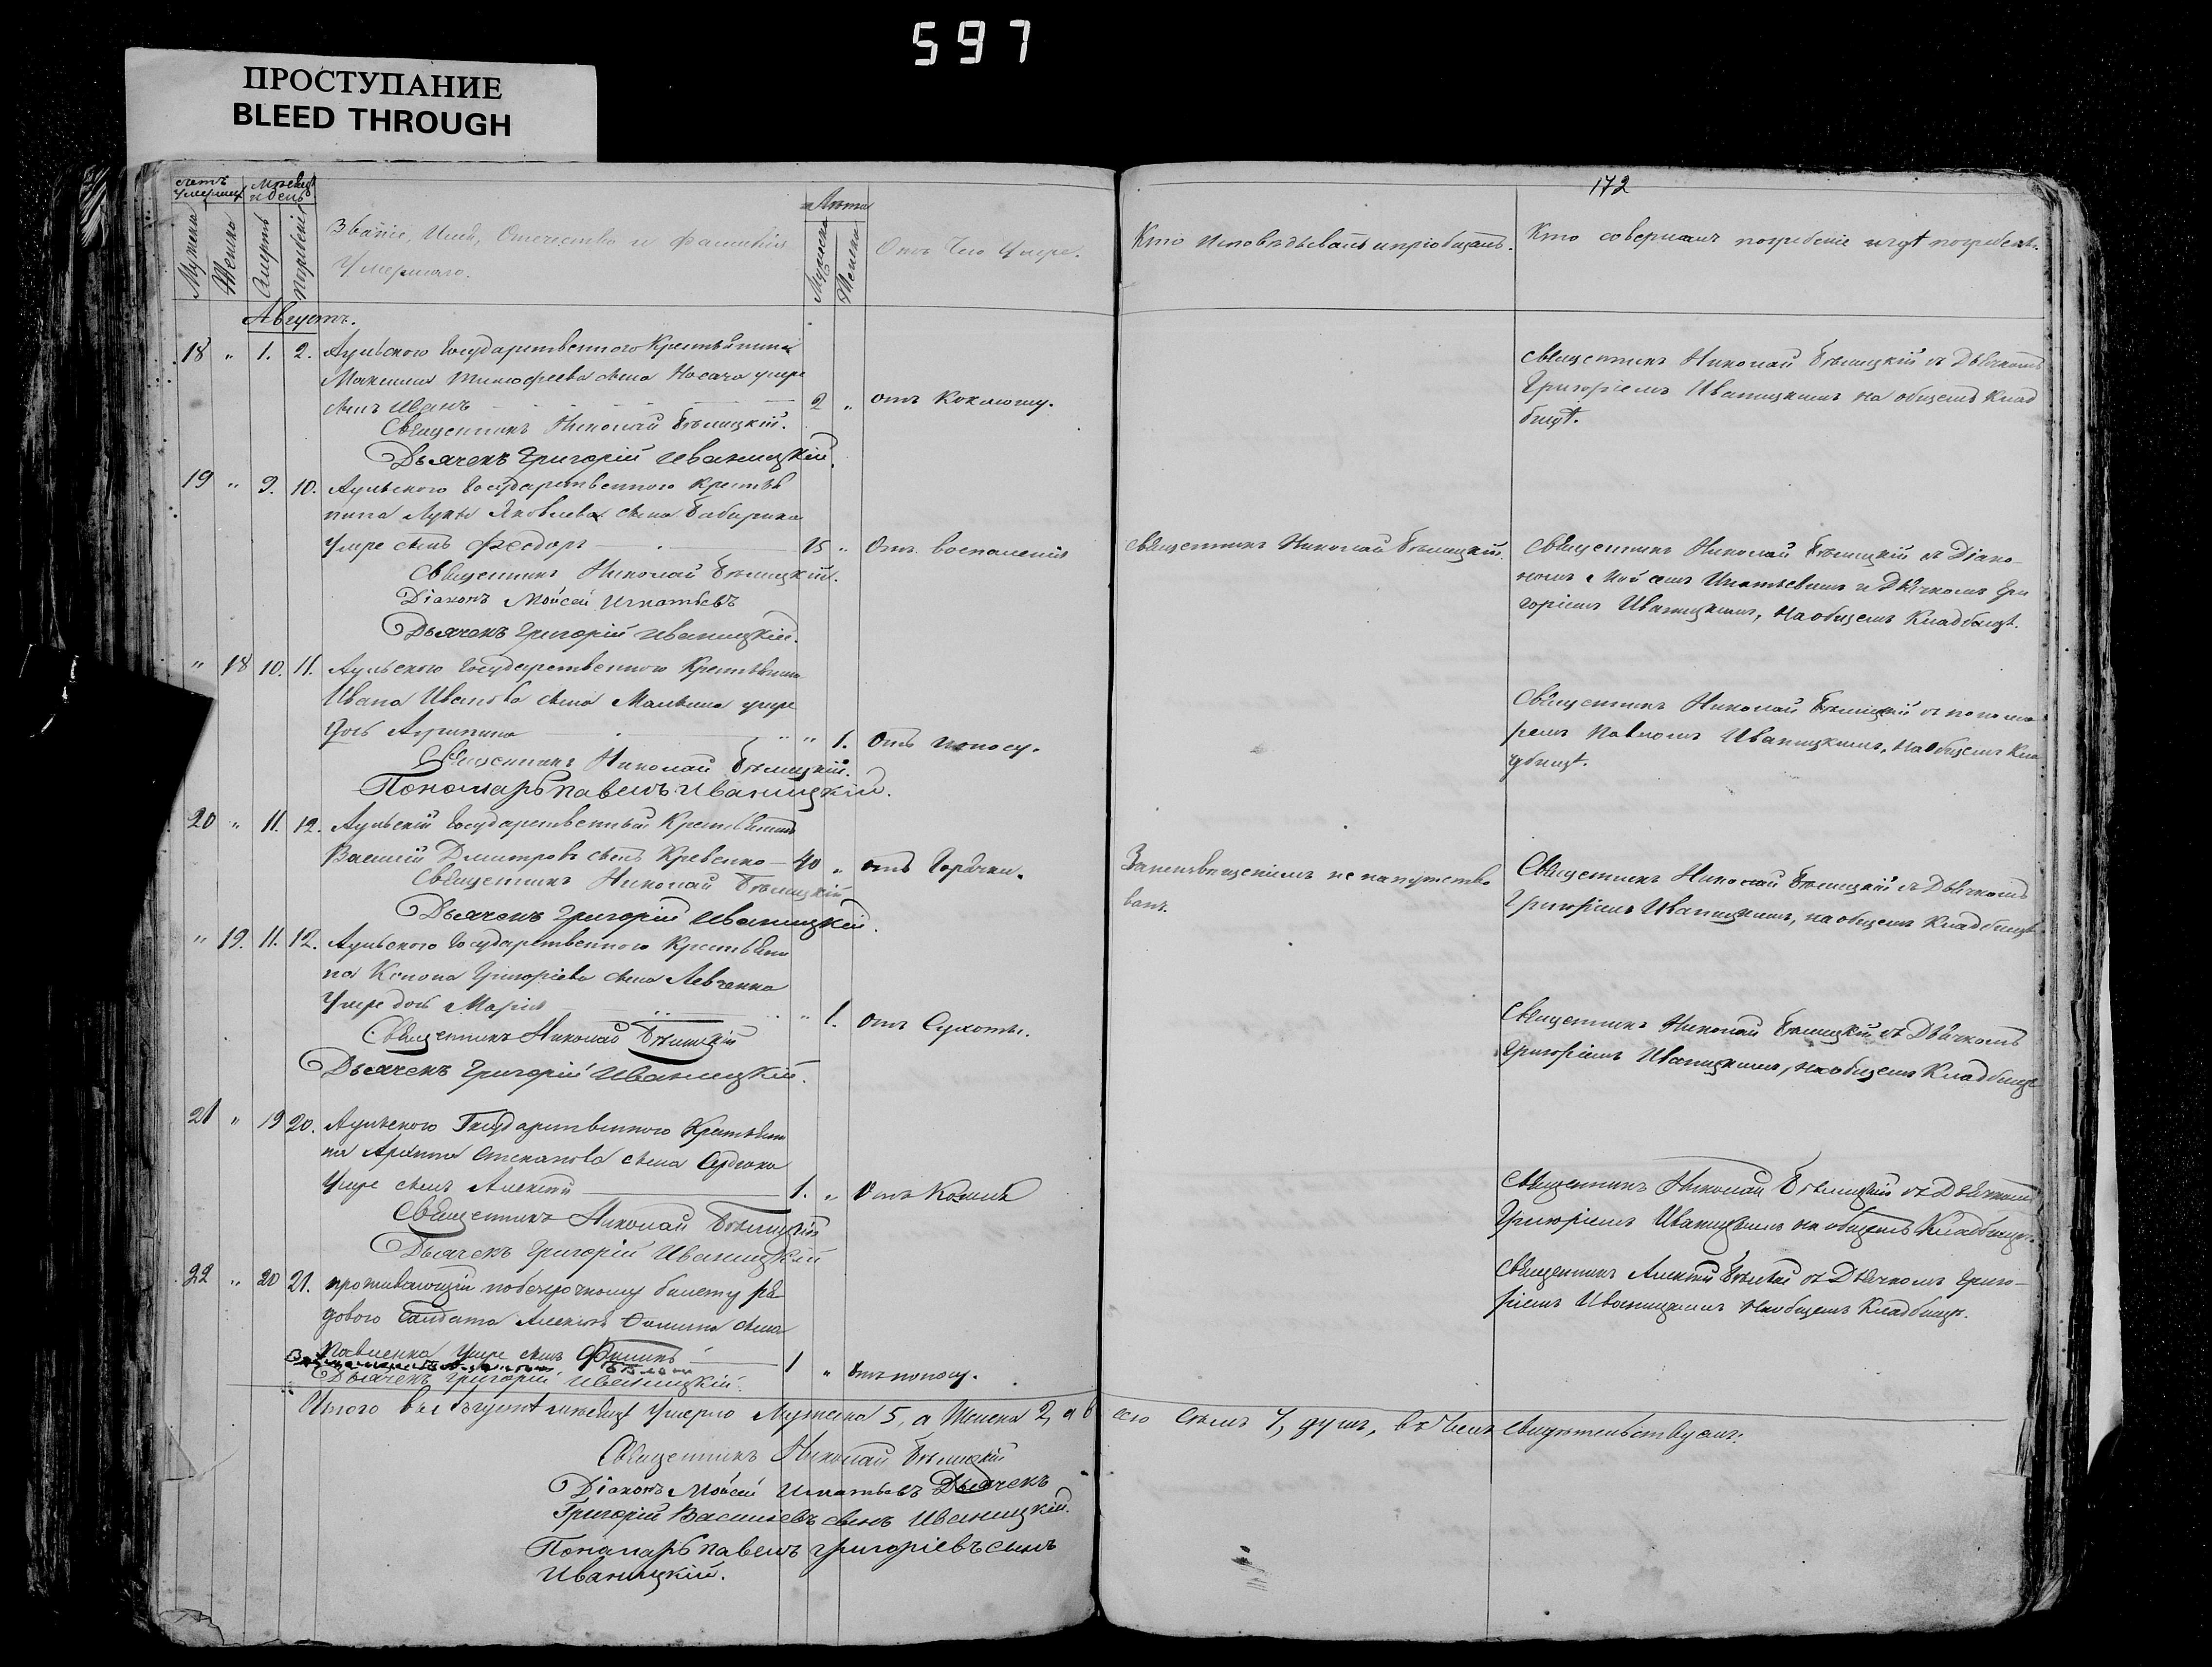 597
ПРОСТУПАНИЕ
BLEED THROUGH
172
Счетъ умершихъ
Мѣсяцъ и день
Мужеска
Женска
Смерть
погребенія
Званіе, Имя, Отечество и Фамилія
Умершаго.
Лѣта
Мужеска
Женска
Отъ Чего Умре.
Кто Исповѣдывалъ и пріобщалъ.
Кто совершалъ погребеніе и гдѣ погребены.
Августъ.
18 " 1. 2. Аульского Государственного Крестьянина
Максима Тимофеева сына Носача умре
сынъ Иванъ 2 " отъ Коклюшу.
Священникъ Николай Бѣлицкій.
Дьячекъ Григорій Иваницкій.
Священникъ Николай Бѣлицкій съ Дьячкомъ
Григоріемъ Иваницкимъ на общемъ Клад
бищѣ.
19 " 9. 10. Аульского Государственного Крестья
нина Луки Яковлева сына Бабирика
Умре сынъ Феодоръ 15 " Отъ воспаленія
Священникъ Николай Бѣлицкій.
Діаконъ Мойсей Игнатьевъ
Дьячекъ Григорій Иваницкій.
Священникъ Николай Бѣлицкій.
Священникъ Николай Бѣлицкій съ Діако-
номъ Мойсеемъ Игнатьевымъ и Дьячкомъ Гри
горіемъ Иваницкимъ, на общемъ Кладбищѣ.
" 18 10. 11. Аульского Государственного Крестьянина
Ивана Иванова сына Малыша умре
дочь Агрипина " " 1. Отъ поносу.
Священникъ Николай Бѣлицкій.
Пономарь Павелъ Иваницкій.
Священникъ Николай Бѣлицкій съ понома
ремъ Павломъ Иваницкимъ, на общемъ Кла
дбищѣ.
20 " 11. 12. Аульскій Государственный Крестьянинъ
Василій Дмитровъ сынъ Кревенко 40 " отъ Горячки.
Священникъ Николай Бѣлицкій
Дьячекъ Григорій Иваницкій.
не напутство
ванъ.
Священникъ Николай Бѣлицкій съ Дьячкомъ
Григоріемъ Иваницкимъ, на общемъ Кладбищѣ
" 19. 11. 12. Аульского Государственного Крестьяни
на Конона Григоріева сына Левченка
Умре дочь Марія " 1. отъ Сухоты.
Священникъ Николай Бѣлицкій
Дьячекъ Григорій Иваницкій.
Священникъ Николай Бѣлицкій съ Дьячкомъ
Григоріемъ Иваницкимъ, на общемъ Кладбищѣ
21 " 19 20. Аульского Государственного Крестьяни
на Архипа Степанова сына Сердюка
Умре сынъ Алексѣй 1. " Отъ Кашля
Священникъ Николай Бѣлицкій
Дьячекъ Григорій Иваницкій
Священникъ Николай Бѣлицкій съ Дьячкомъ
Григоріемъ Иваницкимъ на общемъ Кладбищѣ.
22 " 20 21. проживающій по безсрочному билету ря
дового Салдата Алексѣя Фомина сына
Павленка Умре сынъ Филипъ 1 " Отъ поносу.
Дьячекъ Григорій Иваницкій.
Священникъ Алексѣй съ Дьячкомъ Григо-
ріемъ Иваницкимъ на общемъ Кладбищѣ.
Итого въ Августѣ мѣсяцѣ Умерло Мужеска 5, а Женска 2, а в
сего семъ 7, душъ, въ Чемъ свидѣтельствуемъ:
Священникъ Николай Бѣлицкій
Діаконъ Мойсей Игнатьевъ Дьячекъ
Григорій Васильевъ сынъ Иваницкій.
Пономарь Павелъ Григоріевъ сынъ
Иваницкій.